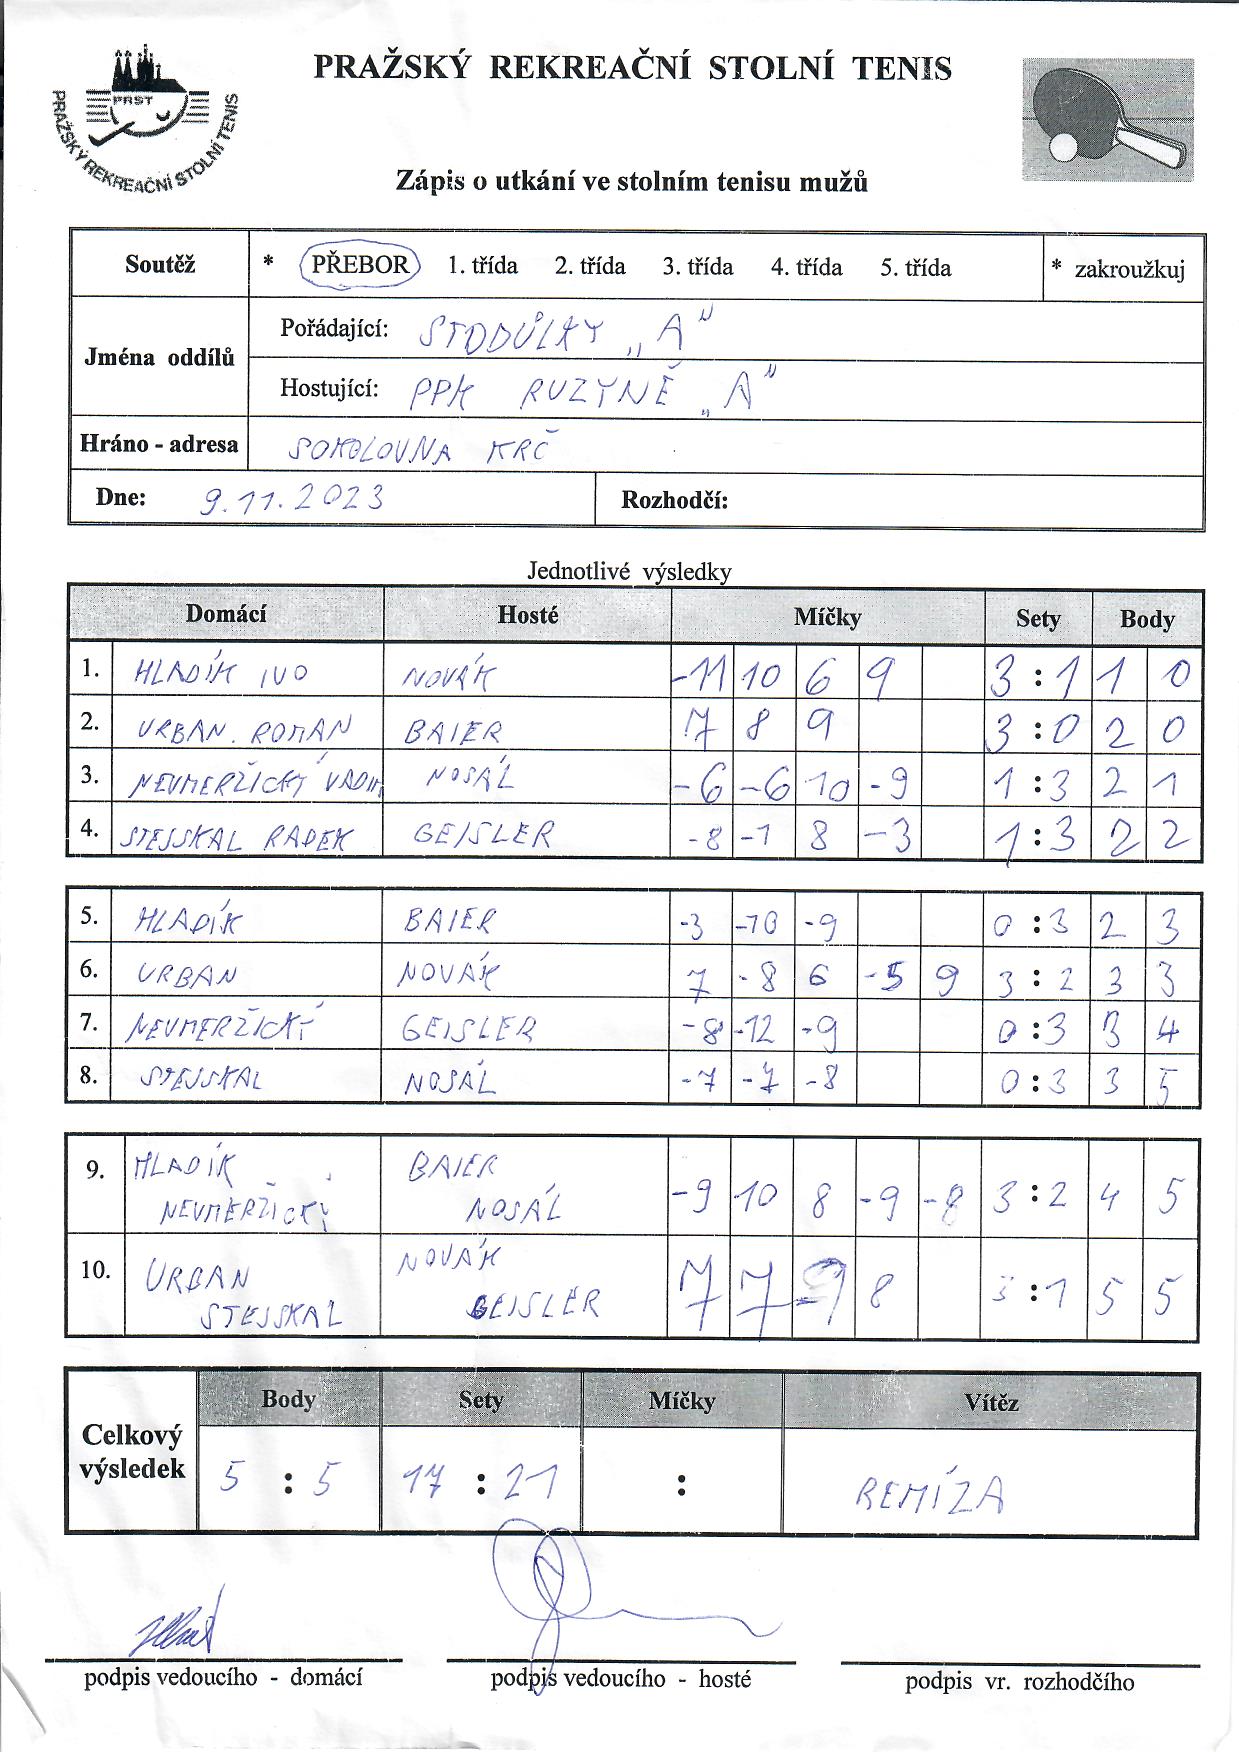 PRAŽSKÝ REKREAČNÍ STOLNÍ TENIS
PRST
PRAŽSKÝ REKREAČNÍ STOLNÍ TENIS
Zápis o utkání ve stolním tenisu mužů
Soutěž * PŘEBOR 1. třída 2. třída 3. třída 4. třída 5. třída * zakroužkuj
Jména oddílů
Pořádající: STODŮLKY „A"
Hostující: PPK RUZYNĚ „A"
Hráno - adresa SOKOLOVNA KRČ
Dne: 9.11.2023 Rozhodčí:
Jednotlivé výsledky
Domácí Hosté Míčky Sety Body
1. HLADÍK IVO NOVÁK -11 10 6 9 3 : 1 1 0
2. URBAN. ROMAN BAIER 7 8 9 3 : 0 2 0
3. NEVMERŽICKÝ VADIM NOSÁL -6 -6 10 -9 1 : 3 2 1
4. STEJSKAL RADEK GEISLER -8 -1 8 -3 1 : 3 2 2
5. HLADÍK BAIER -3 -10 -9 0 : 3 2 3
6. URBAN NOVÁK 7 -8 6 -5 9 3 : 2 3 3
7. NEVMERŽICKÝ GEISLER -8 -12 -9 0 : 3 3 4
8. STEJSKAL NOSÁL -7 -7 -8 0 : 3 3 5
9. HLADÍK BAIER -9 10 8 -9 -8 3 : 2 4 5
NEVMERŽICKÝ NOSÁL
10. URBAN NOVÁK 7 7 -9 8 3 : 1 5 5
STEJSKAL GEISLER
Body Sety Míčky Vítěz
Celkový
výsledek 5 : 5 17 : 21 : REMÍZA
podpis vedoucího - domácí podpis vedoucího - hosté podpis vr. rozhodčího